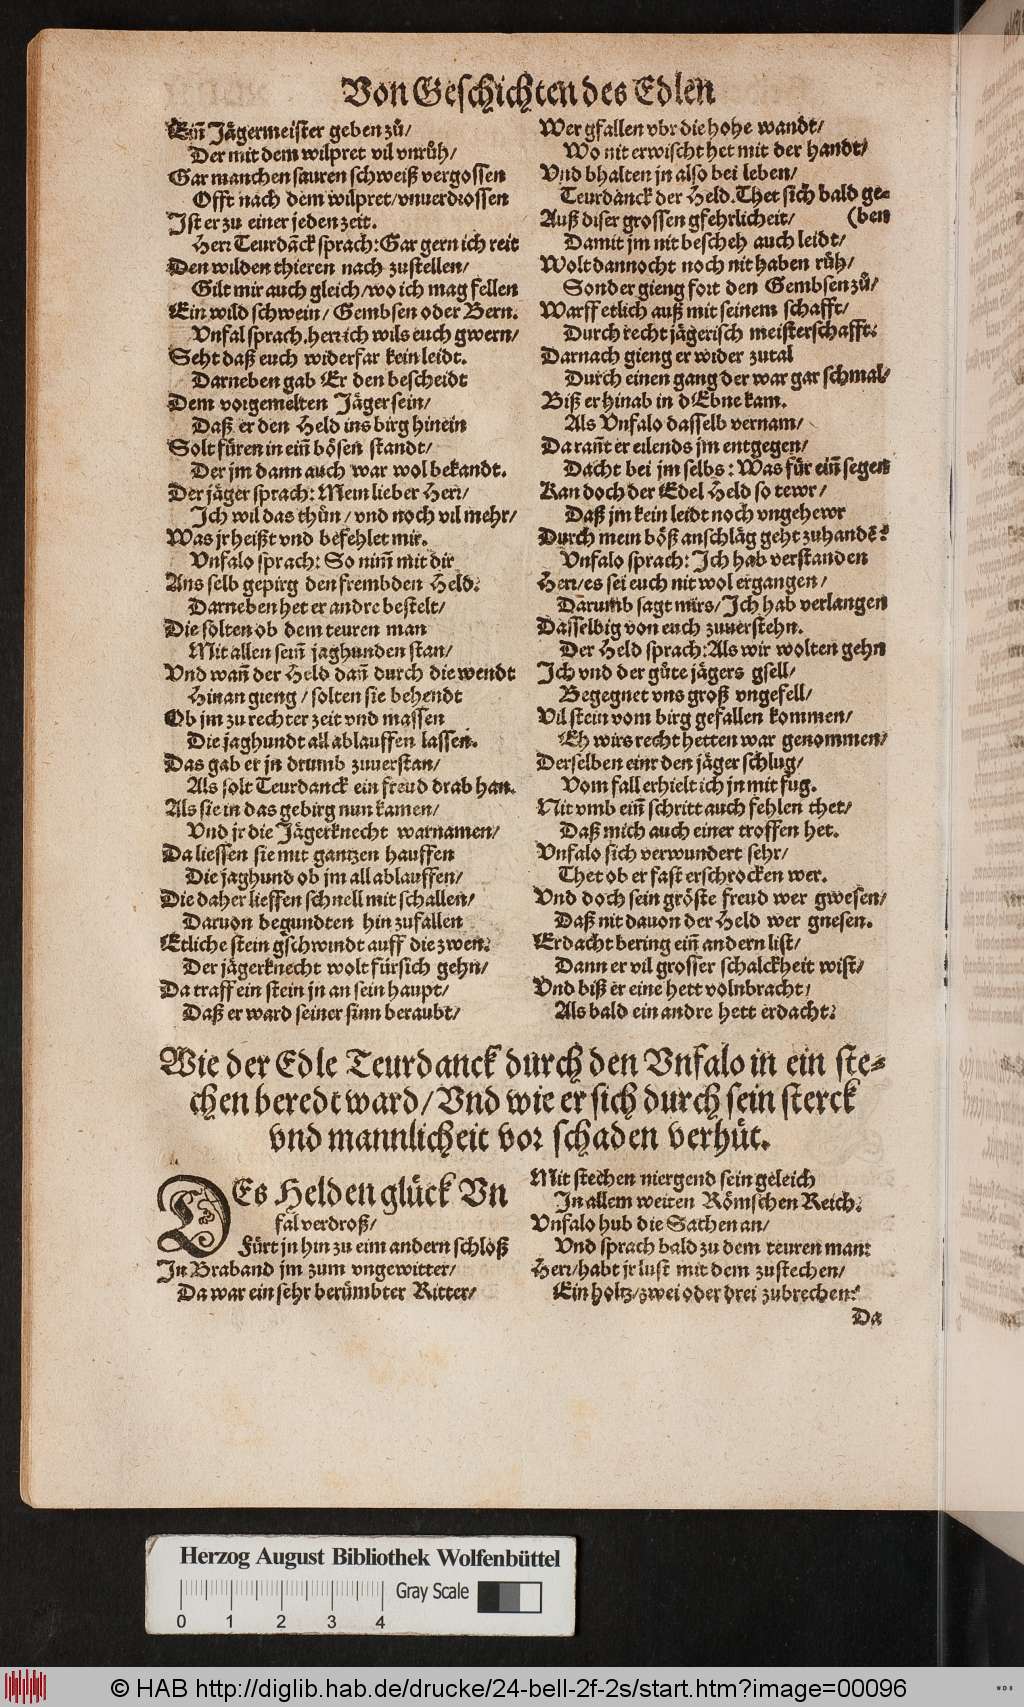 Von Geschichten des Edlen
Ein̄ Jägermeister geben zů/
Der mit dem wilpret vil vnrůh/
Gar manchen sauren schweiß vergossen
Offt nach dem wilpret/vnuerdrossen
Ist er zu einer jeden zeit.
Herr Teurdāck sprach: Gar gern ich reit
Den wilden thieren nach zustellen/
Gilt mir auch gleich/wo ich mag fellen
Ein wild schwein/ Gembsen oder Bern.
Vnfal sprach. herr ich wils euch gwern/
Seht daß euch widerfar kein leidt.
Darneben gab Er den bescheidt
Dem vorgemelten Jäger sein/
Daß er den Held ins birg hinein
Solt füren in ein̄ bösen standt/
Der jm dann auch war wol bekandt.
Der jäger sprach: Mein lieber Herr/
Ich wil das thůn/ vnd noch vil mehr/
Was jr heißt vnd befehlet mir.
Vnfalo sprach: So nim̄ mit dir
Ans selb gepirg den frembden Held:
Darneben het er andre bestelt/
Die solten ob dem teuren man
Mit allen sein̄ jaghunden stan/
Vnd wan̄ der Held dan̄ durch die wendt
Hinan gieng/ solten sie behendt
Ob jm zu rechter zeit vnd massen
Die jaghundt all ablauffen lassen.
Das gab er jn drumb zuuerstan/
Als solt Teurdanck ein freud drab han.
Als sie in das gebirg nun kamen/
Vnd jr die Jägerknecht warnamen/
Da liessen sie mit gantzen hauffen
Die jaghund ob jm all ablauffen/
Die daher lieffen schnell mit schallen/
Daruon begundten hin zufallen
Etliche stein gschwindt auff die zwen:
Der jägerknecht wolt fürsich gehn/
Da traff ein stein jn an sein haupt/
Daß er ward seiner sinn beraubt/
Wer gfallen vbr die hohe wandt/
Wo nit erwischt het mit der handt/
Vnd bhalten jn also bei leben/
Teurdanck der Held. Thet sich bald ge-
Auß diser grossen gfehrlicheit/ (ben
Damit jm nit bescheh auch leidt/
Wolt dannocht noch nit haben růh/
Sonder gieng fort den Gembsen zů/
Warff etlich auß mit seinem schafft/
Durch recht jägerisch meisterschafft:
Darnach gieng er wider zutal
Durch einen gang der war gar schmal/
Biß er hinab in d Ebne kam.
Als Vnfalo dasselb vernam/
Da ran̄t er eilends jm entgegen/
Dacht bei jm selbs: Was für ein̄ segen
Kan doch der Edel Held so tewr/
Daß jm kein leidt noch vngehewr
Durch mein böß anschläg geht zuhandē?
Vnfalo sprach: Ich hab verstanden
Herr/es sei euch nit wol ergangen/
Darumb sagt mirs/Ich hab verlangen
Dasselbig von euch zuuerstehn.
Der Held sprach: Als wir wolten gehn
Ich vnd der gůte jägers gsell/
Begegnet vns groß vngefell/
Vil stein vom birg gefallen kommen/
Eh wirs recht hetten war genommen/
Derselben einr den jäger schlug/
Vom fall erhielt ich jn mit fug.
Nit vmb ein̄ schritt auch fehlen thet/
Daß mich auch einer troffen het.
Vnfalo sich verwundert sehr/
Thet ob er fast erschrocken wer.
Vnd doch sein gröste freud wer gwesen/
Daß nit dauon der Held wer gnesen.
Erdacht bering ein̄ andern list/
Dann er vil grosser schalckheit wist/
Vnd biß er eine hett volnbracht/
Als bald ein andre hett erdacht:
Wie der Edle Teurdanck durch den Vnfalo in ein ste-
chen beredt ward/Vnd wie er sich durch sein sterck
vnd mannlicheit vor schaden verhüt.
DEs Helden glück Vn
fal verdroß/
Fürt jn hin zu eim andern schloß
In Braband jm zum vngewitter/
Da war ein sehr berümbter Ritter/
Mit stechen niergend sein geleich
In allem weiten Römschen Reich:
Vnfalo hub die Sachen an/
Vnd sprach bald zu dem teuren man:
Herr/habt jr lust mit dem zustechen/
Ein holtz/zwei oder drei zubrechen?
Da
Herzog August Bibliothek Wolfenbüttel
Gray Scale
0 1 2 3 4
© HAB http://diglib.hab.de/drucke/24-bell-2f-2s/start.htm?image=00096